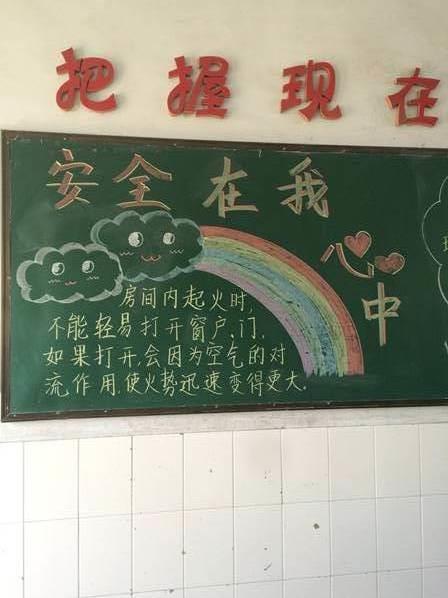 把握现在
安全在我
心
中
房间内起火时,
不能轻易打开窗户、门,
如果打开,会因为空气的对
流作用,使火势迅速变得更大.